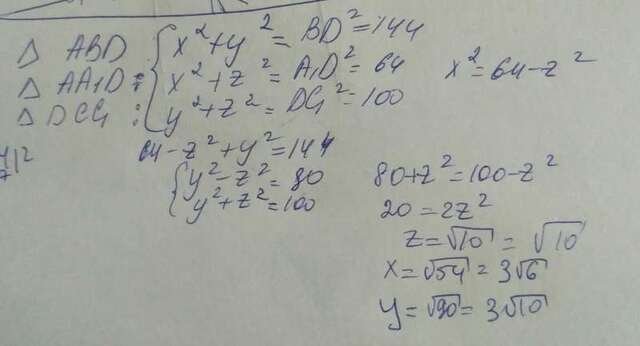 △ ABD { x² + y² = BD² = 144
△ AA₁D : { x² + z² = A₁D² = 64
△ DCC₁ : { y² + z² = DC₁² = 100
x² = 64 - z²
64 - z² + y² = 144
{ y² - z² = 80
{ y² + z² = 100
80 + z² = 100 - z²
20 = 2z²
z = √10 = √10
x = √54 = 3√6
y = √90 = 3√10